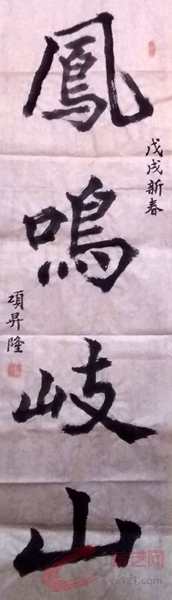 鳳鳴岐山
戊戌新春
項昇隆
yx121.com